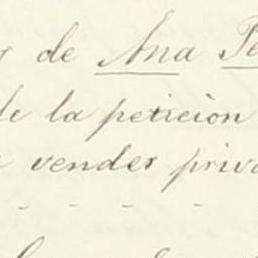 de Ana Pe
de la peticion
vender priva